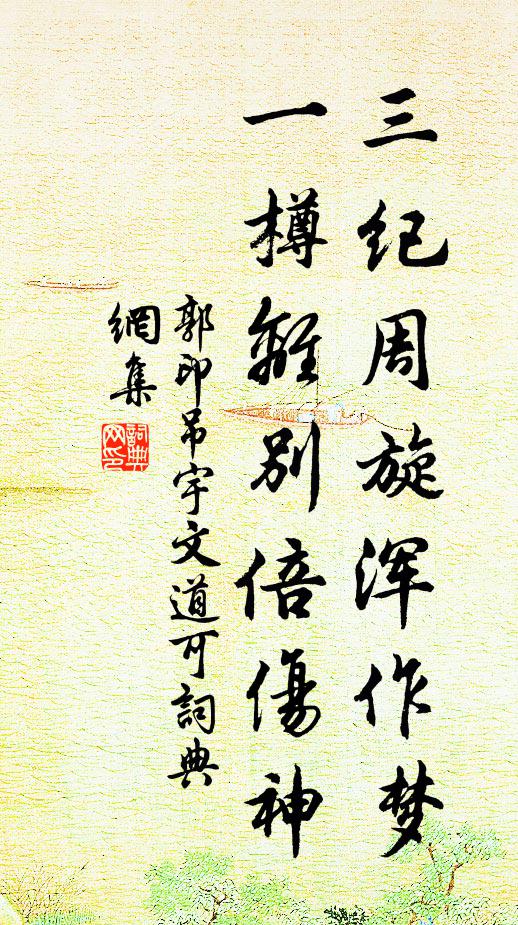 三纪周旋浑作梦
一樽離别倍傷神
郭印吊宇文道可詞典
網集
詞典
网印